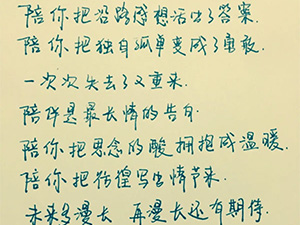 陪你把沿路感想活出了答案.
陪你把独自孤单变成了勇敢.
一次次失去了又重来.
陪伴是最长情的告白.
陪你把思念的酸拥抱成温暖.
陪你把彷徨写出情节来.
未来多漫长 再漫长还有期待.